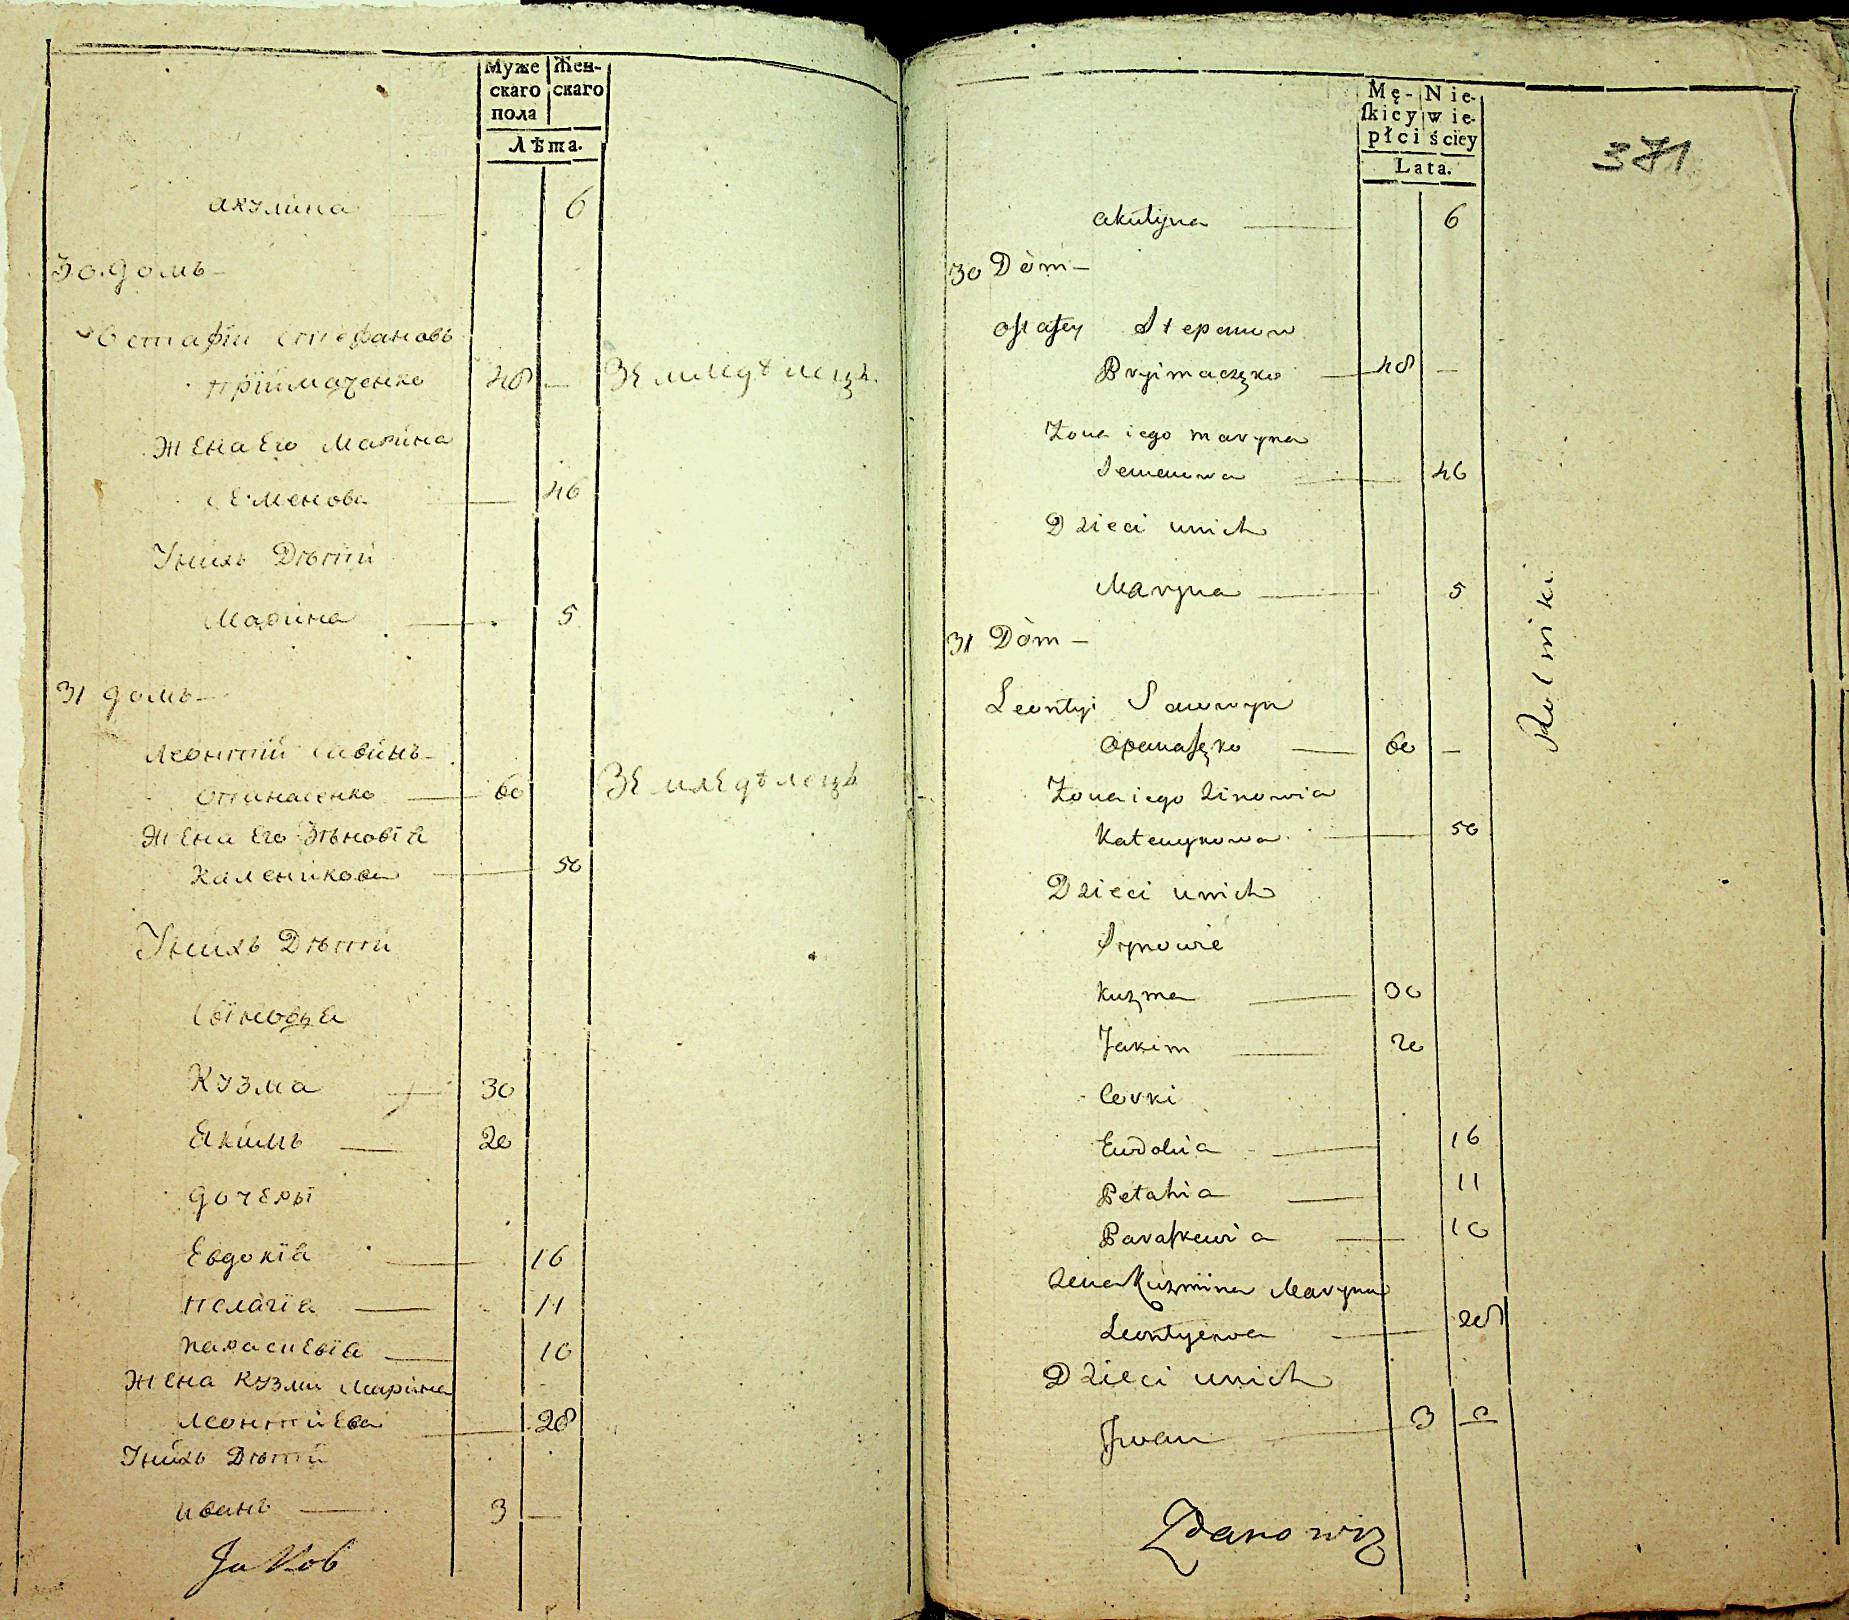 Муже Жен-
скаго скаго
пола
Лѣта.
акулина 6
30. домъ
Остафїй Стефановъ
Прїймаченко 48 — Землмедѣлецъ.
Жена Его Марина
Семенова 46
Унихъ Дѣтти
Марина 5
31 домъ
Леонтїй Савинъ
Опанасенко 60 Землѣдѣлецъ
Жена Его Зѣновїа
Каленикова 50
Унихъ Дѣтти
Сыновья
Кузма 30
Якимъ 20
дочеры
Евдокїа 16
Пелагїа 11
Параскевїа 10
Жена Кузми Марина
Леонтиева 28
Унихъ Дѣтти
иванъ 3 —
Jakob
Mę- Nie-
ſkiey wie-
płci ściey
Lata.
371
akulyna 6
30 Dòm —
Ostafey Stepanow
Pryimaczęko 48 —
Zona iego maryna
Semenowa 46
Dzieci unich
Maryna 5
31 Dòm —
Leontyi Sawwyn
Opanaſęko 60 —
Zona iego Zinowia
Kalenykowa 50
Dzieci unich
Synowie
Kuzma 30
Jakim 20
Corki
Eudokia 16
Pelahia 11
Paraſkewia 10
Zena Kuzmina Maryna
Leontyewa 28
Dzieci unich
Jwan 3 —
Rolniki
Zdanowicz